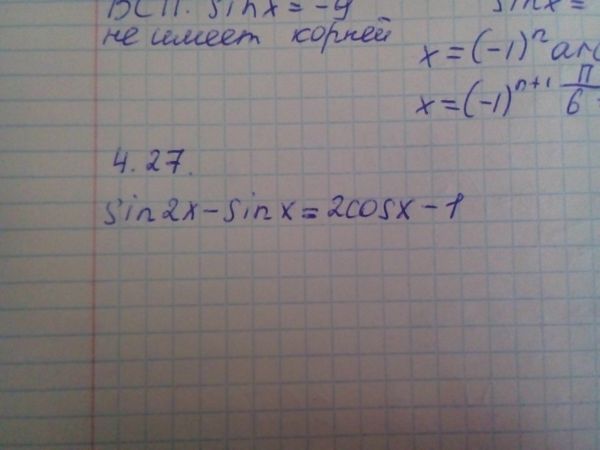 ВСП. sin x = -4
не имеет корней
sin x =
x = (-1)ⁿ arc
x = (-1)ⁿ⁺¹ π/6
4.27.
sin2x - sin x = 2cosx - 1